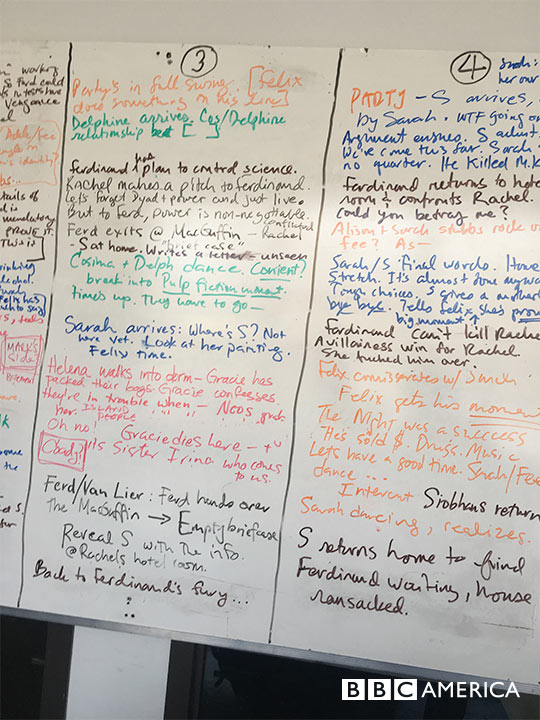 working
S Ferd could
Vengeance
identity?
details of
mandatory
alcohol.
MARK'S
SIDE
3
Party's in full swing. [Felix
does something in his line]
Delphine arrives. Cos/Delphine
relationship [ ]
ferdinand has plan to control science.
Rachel makes a pitch to ferdinand.
Let's forget Dyad + power and just live.
But to Ferd, power is non-negotiable.
Ferd exits @ MacGuffin - Rachel
conflicted
"brief case"
- S at home. Writes a letter - unseen
Cosima + Delph dance. Content?
break into Pulp Fiction moment
times up. They have to go -
Sarah arrives: Where's S? Not
here yet. Look at her painting.
Felix time.
Helena walks into dorm - Gracie has
packed their bags. Gracie confesses
they're in trouble when - Neos
her. ISLAND
PEOPLE " " "
Oh no!
Gracie dies here -
Coady?
'tis Sister Irina who comes
to us.
Ferd/Van Lier: Ferd hands over
the MacGuffin → Empty briefcase
Reveal S with the info.
@Rachel's hotel room.
Back to ferdinand's fury...
4
Sarah:
her our
PARTY - S arrives,
by Sarah. WTF going on
Argument ensues. S
We've come this far. Sarah
no quarter. He Killed M.K.
ferdinand returns to hotel
room & confronts Rachel.
Could you betray me?
Alison + Sarah stubbs rock
fee? As -
Sarah/S. Final words. Home
Stretch. It's almost done
Tough choices. S gives a
bye bye. Tells felix, she's proud
big moment!
Ferdinand can't kill Rachel
A villainess win for Rachel.
She fucked him over.
Felix commiserates w/ Sarah
Felix gets his moment
The Night was a success
He's sold $. Drugs. Music
Lets have a good time. Sarah/Felix
dance ...
Intercut Siobhans return
Sarah dancing, realizes.
S returns home to find
Ferdinand waiting, house
ransacked.
BBC AMERICA